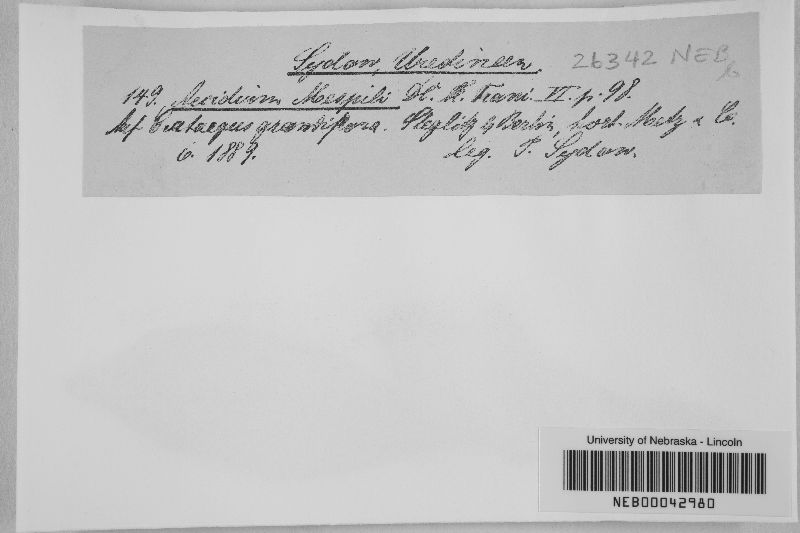 Sydow, Uredineen. 26342 NEB
149. Aecidium Mespili DC. Fl. Franç. VI. p. 98.
Auf Crataegus grandiflora. Steglitz b/Berlin, hort. Metz & Co.
6. 1889. leg. P. Sydow.
University of Nebraska - Lincoln
NEB00042980